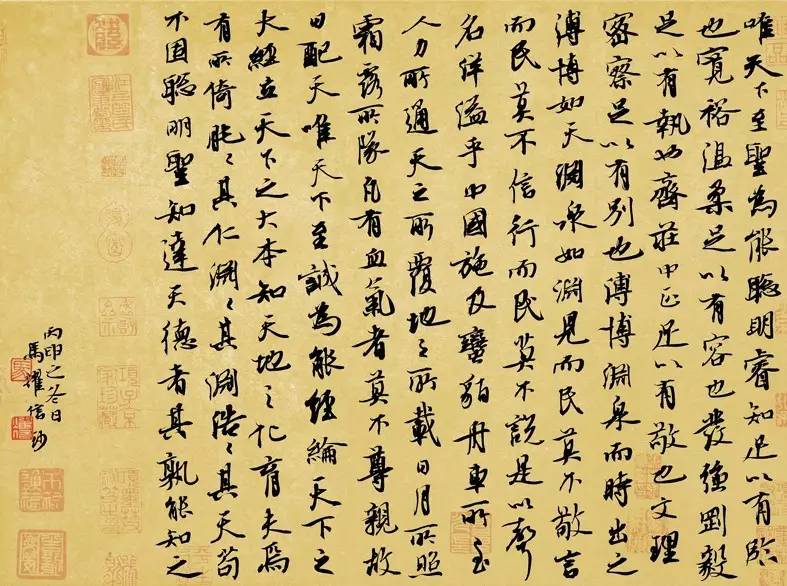 唯天下至聖為能聰明睿知足以有臨
也寬裕溫柔足以有容也發強剛毅
足以有執也齊莊中正足以有敬也文理
密察足以有別也溥博淵泉而時出之
溥博如天淵泉如淵見而民莫不敬言
而民莫不信行而民莫不說是以聲
名洋溢乎中國施及蠻貊舟車所至
人力所通天之所覆地之所載日月所照
霜露所隊凡有血氣者莫不尊親故
曰配天唯天下至誠為能經綸天下之
大經立天下之大本知天地之化育夫焉
有所倚肫〻其仁淵〻其淵浩〻其天苟
不固聰明聖知達天德者其孰能知之
丙申之冬日
馬耀信抄